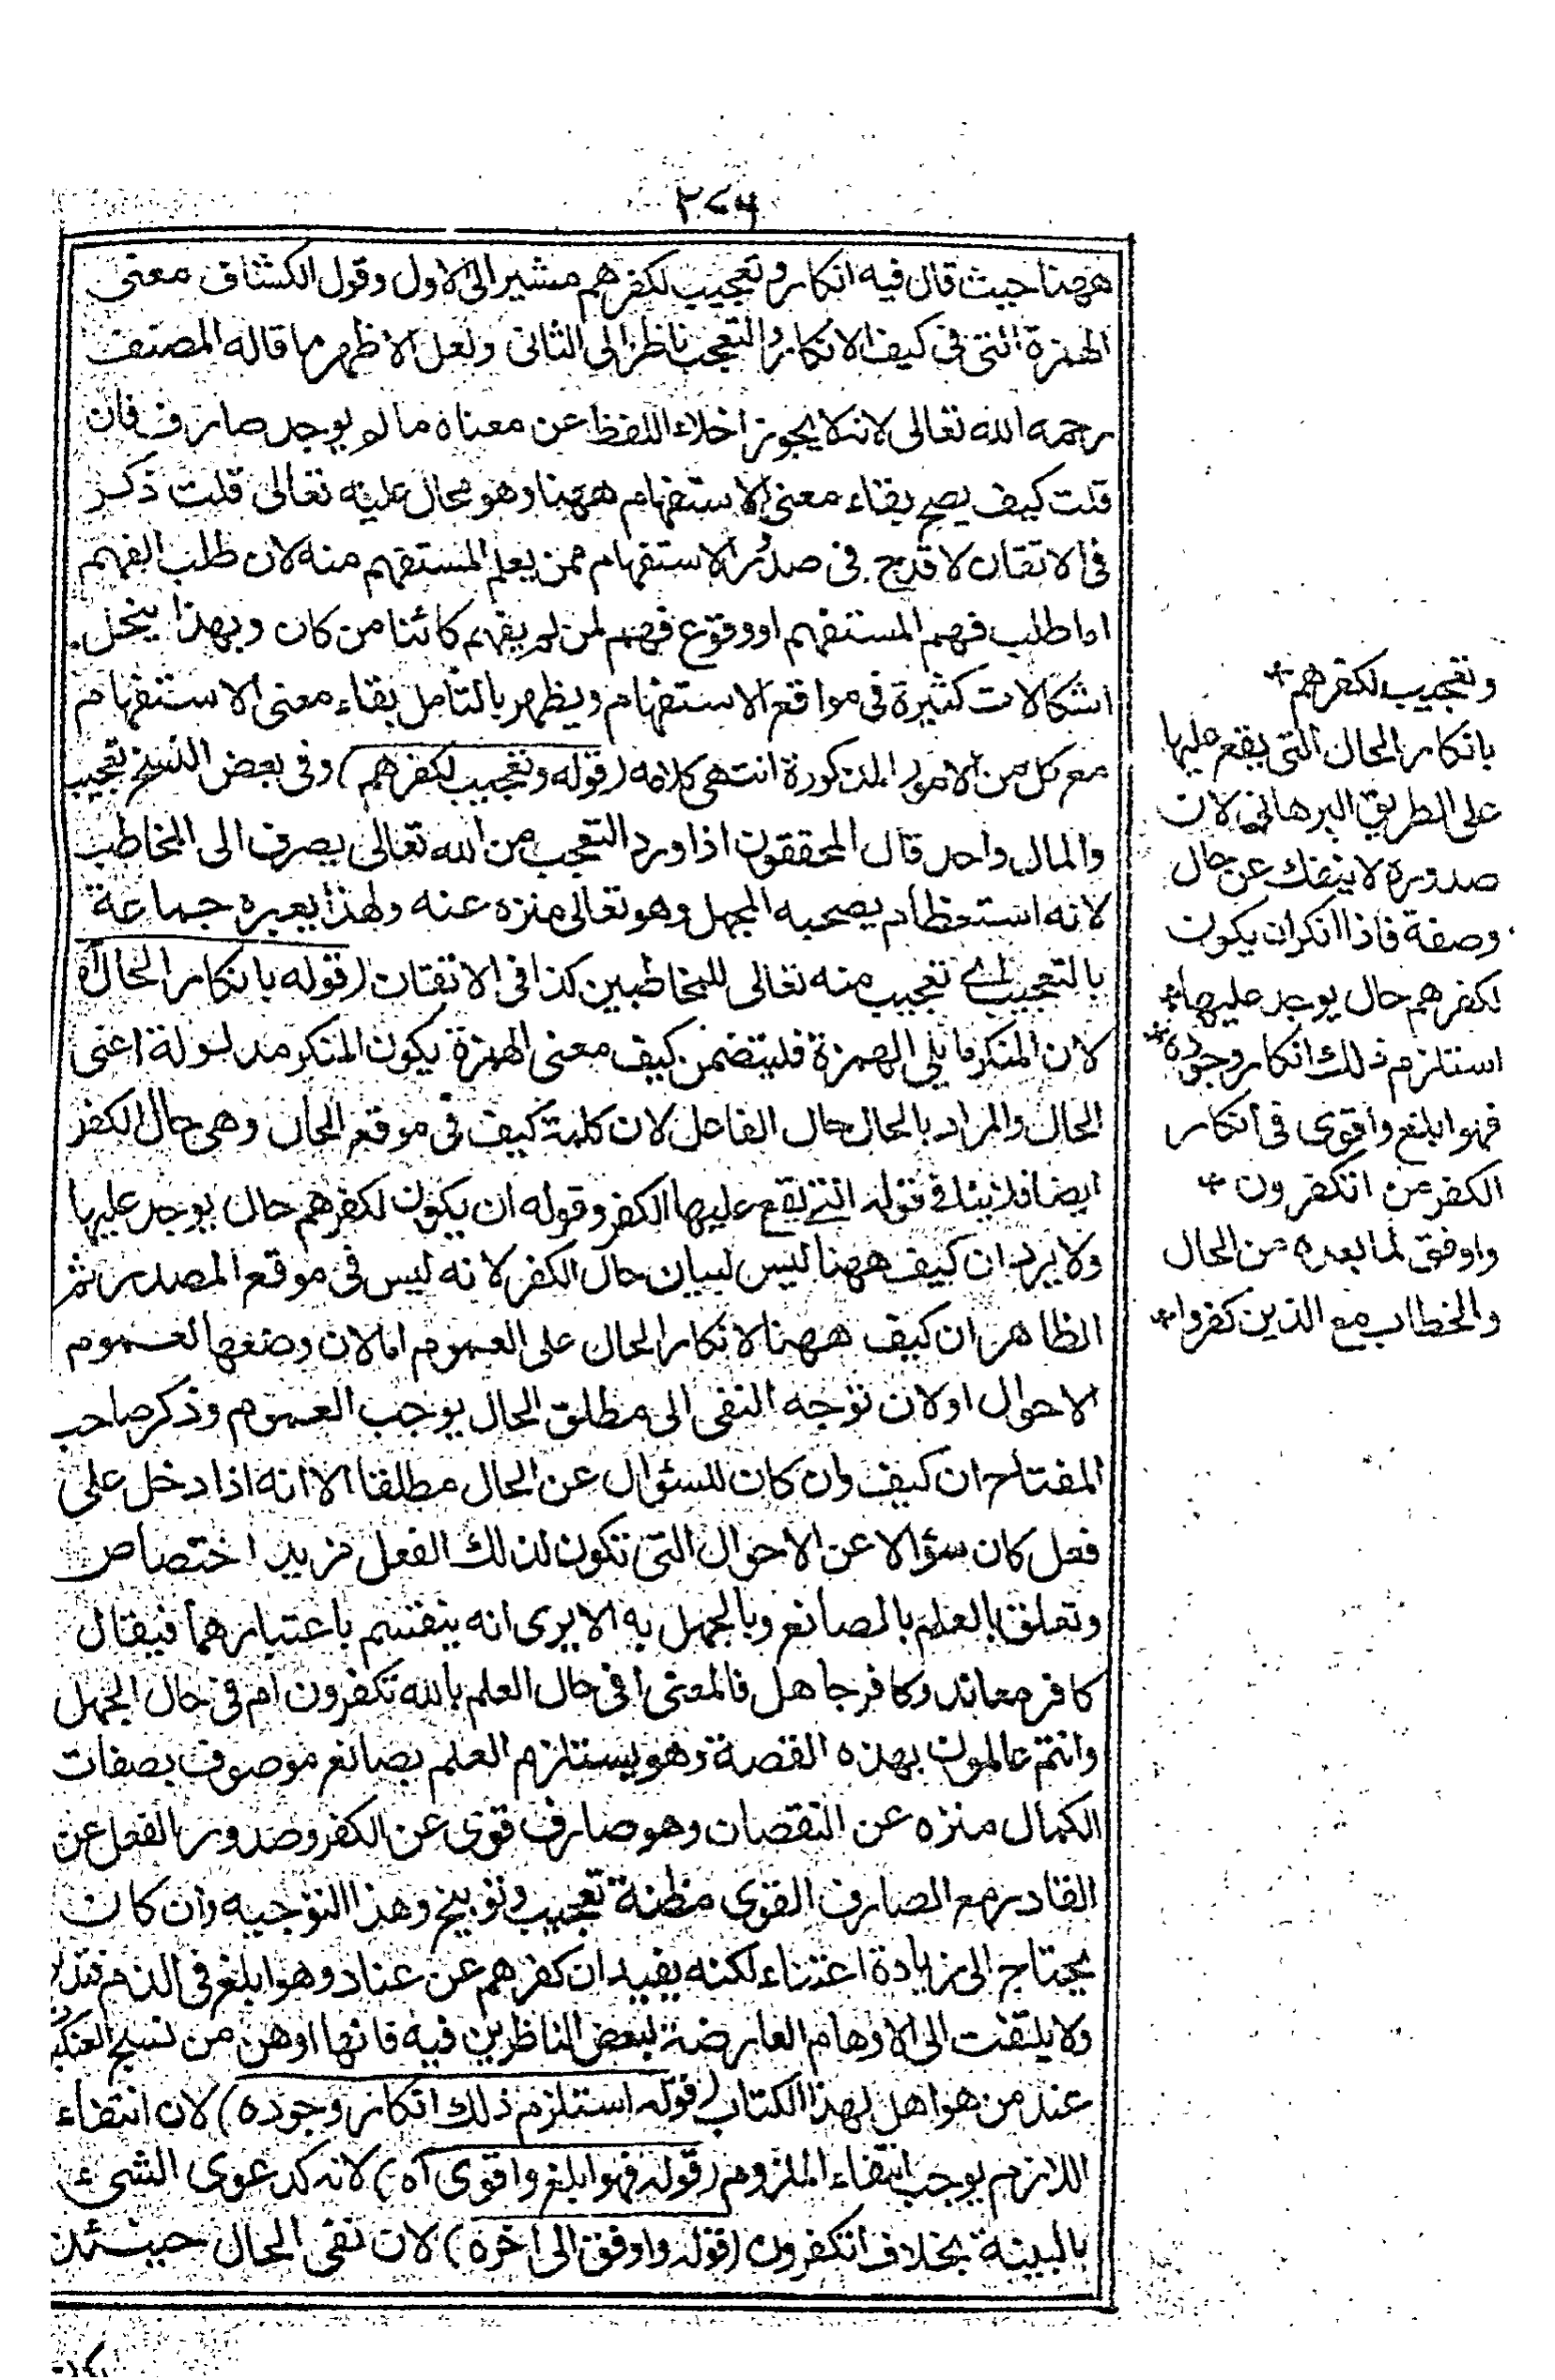 ٢٧٦
ههنا حيث قال فيه انكار وتعجيب لكفرهم مشيرا الى الاول وقول الكشاف معنى
الهمزة التى فى كيف الانكار والتعجب ناظر الى الثانى ولعل الاظهر ما قاله المصنف
رحمه الله تعالى لانه لا يجوز اخلاء اللفظ عن معناه ما لم يوجد صارف فان
قلت كيف يصح بقاء معنى الاستفهام ههنا وهو محال عليه تعالى قلت ذكر
فى الاتقان لا قدح فى صدور الاستفهام ممن يعلم المستفهم منه لان طلب الفهم
اما طلب فهم المستفهم او وقوع فهم لمن لم يفهم كائنا من كان وبهذا ينحل
اشكالات كثيرة فى مواقع الاستفهام ويظهر بالتأمل بقاء معنى الاستفهام
مع كل من الامور المذكورة انتهى كلامه (قوله وتعجيب لكفرهم) وفى بعض النسخ تعجب
والمال واحد قال المحققون اذا ورد التعجب من الله تعالى يصرف الى المخاطب
لانه استعظام يصحبه الجهل وهو تعالى منزه عنه ولهذا يعبره جماعة
بالتعجيب اے تعجيب منه تعالى للمخاطبين كذا فى الاتقان (قوله بانكار الحال آه
لان المنكر ما يلى الهمزة فليتضمن كيف معنى الهمزة يكون المنكر مدلوله اعنى
الحال والمراد بالحال حال الفاعل لان كلمة كيف فى موقع الحال وهى حال الكفر
ايضا فلذا قوله التى يقع عليها الكفر وقوله ان يكون لكفرهم حال يوجد عليها
ولا يرد ان كيف ههنا ليس لبيان حال الكفر لانه ليس فى موقع المصدر ثم
الظاهر ان كيف ههنا لانكار الحال على العموم اما لان وضعها لعموم
الاحوال او لان توجه النفى الى مطلق الحال يوجب العموم وذكر صاحب
المفتاح ان كيف وان كان للسئوال عن الحال مطلقا الا انه اذا دخل على
فعل كان سؤالا عن الاحوال التى تكون لذلك الفعل مزيد اختصاص
وتعلق بالعلم بالصانع وبالجهل به الا يرى انه ينقسم باعتبارهما فيقال
كافر معاند وكافر جاهل فالمعنى افى حال العلم بالله تكفرون ام فى حال الجهل
وانتم عالمون بهذه القصة وهو يستلزم العلم بصانع موصوف بصفات
الكمال منزه عن النقصان وهو صارف قوى عن الكفر وصدور الفعل عن
القادر مع الصارف القوى مظنة تعجيب وتوبيخ وهذا التوجيه وان كان
يحتاج الى زيادة اعتناء لكنه يفيد ان كفرهم عن عناد وهو ابلغ فى الذم فتدبر
ولا يلتفت الى الاوهام العارضة لبعض الناظرين فيه فانها اوهن من نسج العنكبوت
عند من هو اهل لهذا الكتاب (قوله استلزم ذلك انكار وجوده) لان انتفاء
اللازم يوجب انتفاء الملزوم (قوله فهو ابلغ واقوى آه) لانه كدعوى الشىء
بالبينة بخلاف اتكفرون (قوله واوفق الى اخره) لان نفى الحال حينئذ
وتعجيب لكفرهم
بانكار الحال التى يقع عليها
على الطريق البرهانى لان
صدوره لا ينفك عن حال
وصفة فاذا انكر ان يكون
لكفرهم حال يوجد عليها
استلزم ذلك انكار وجوده
فهو ابلغ واقوى فى انكار
الكفر من اتكفرون
واوفق لما بعده من الحال
والخطاب مع الذين كفروا